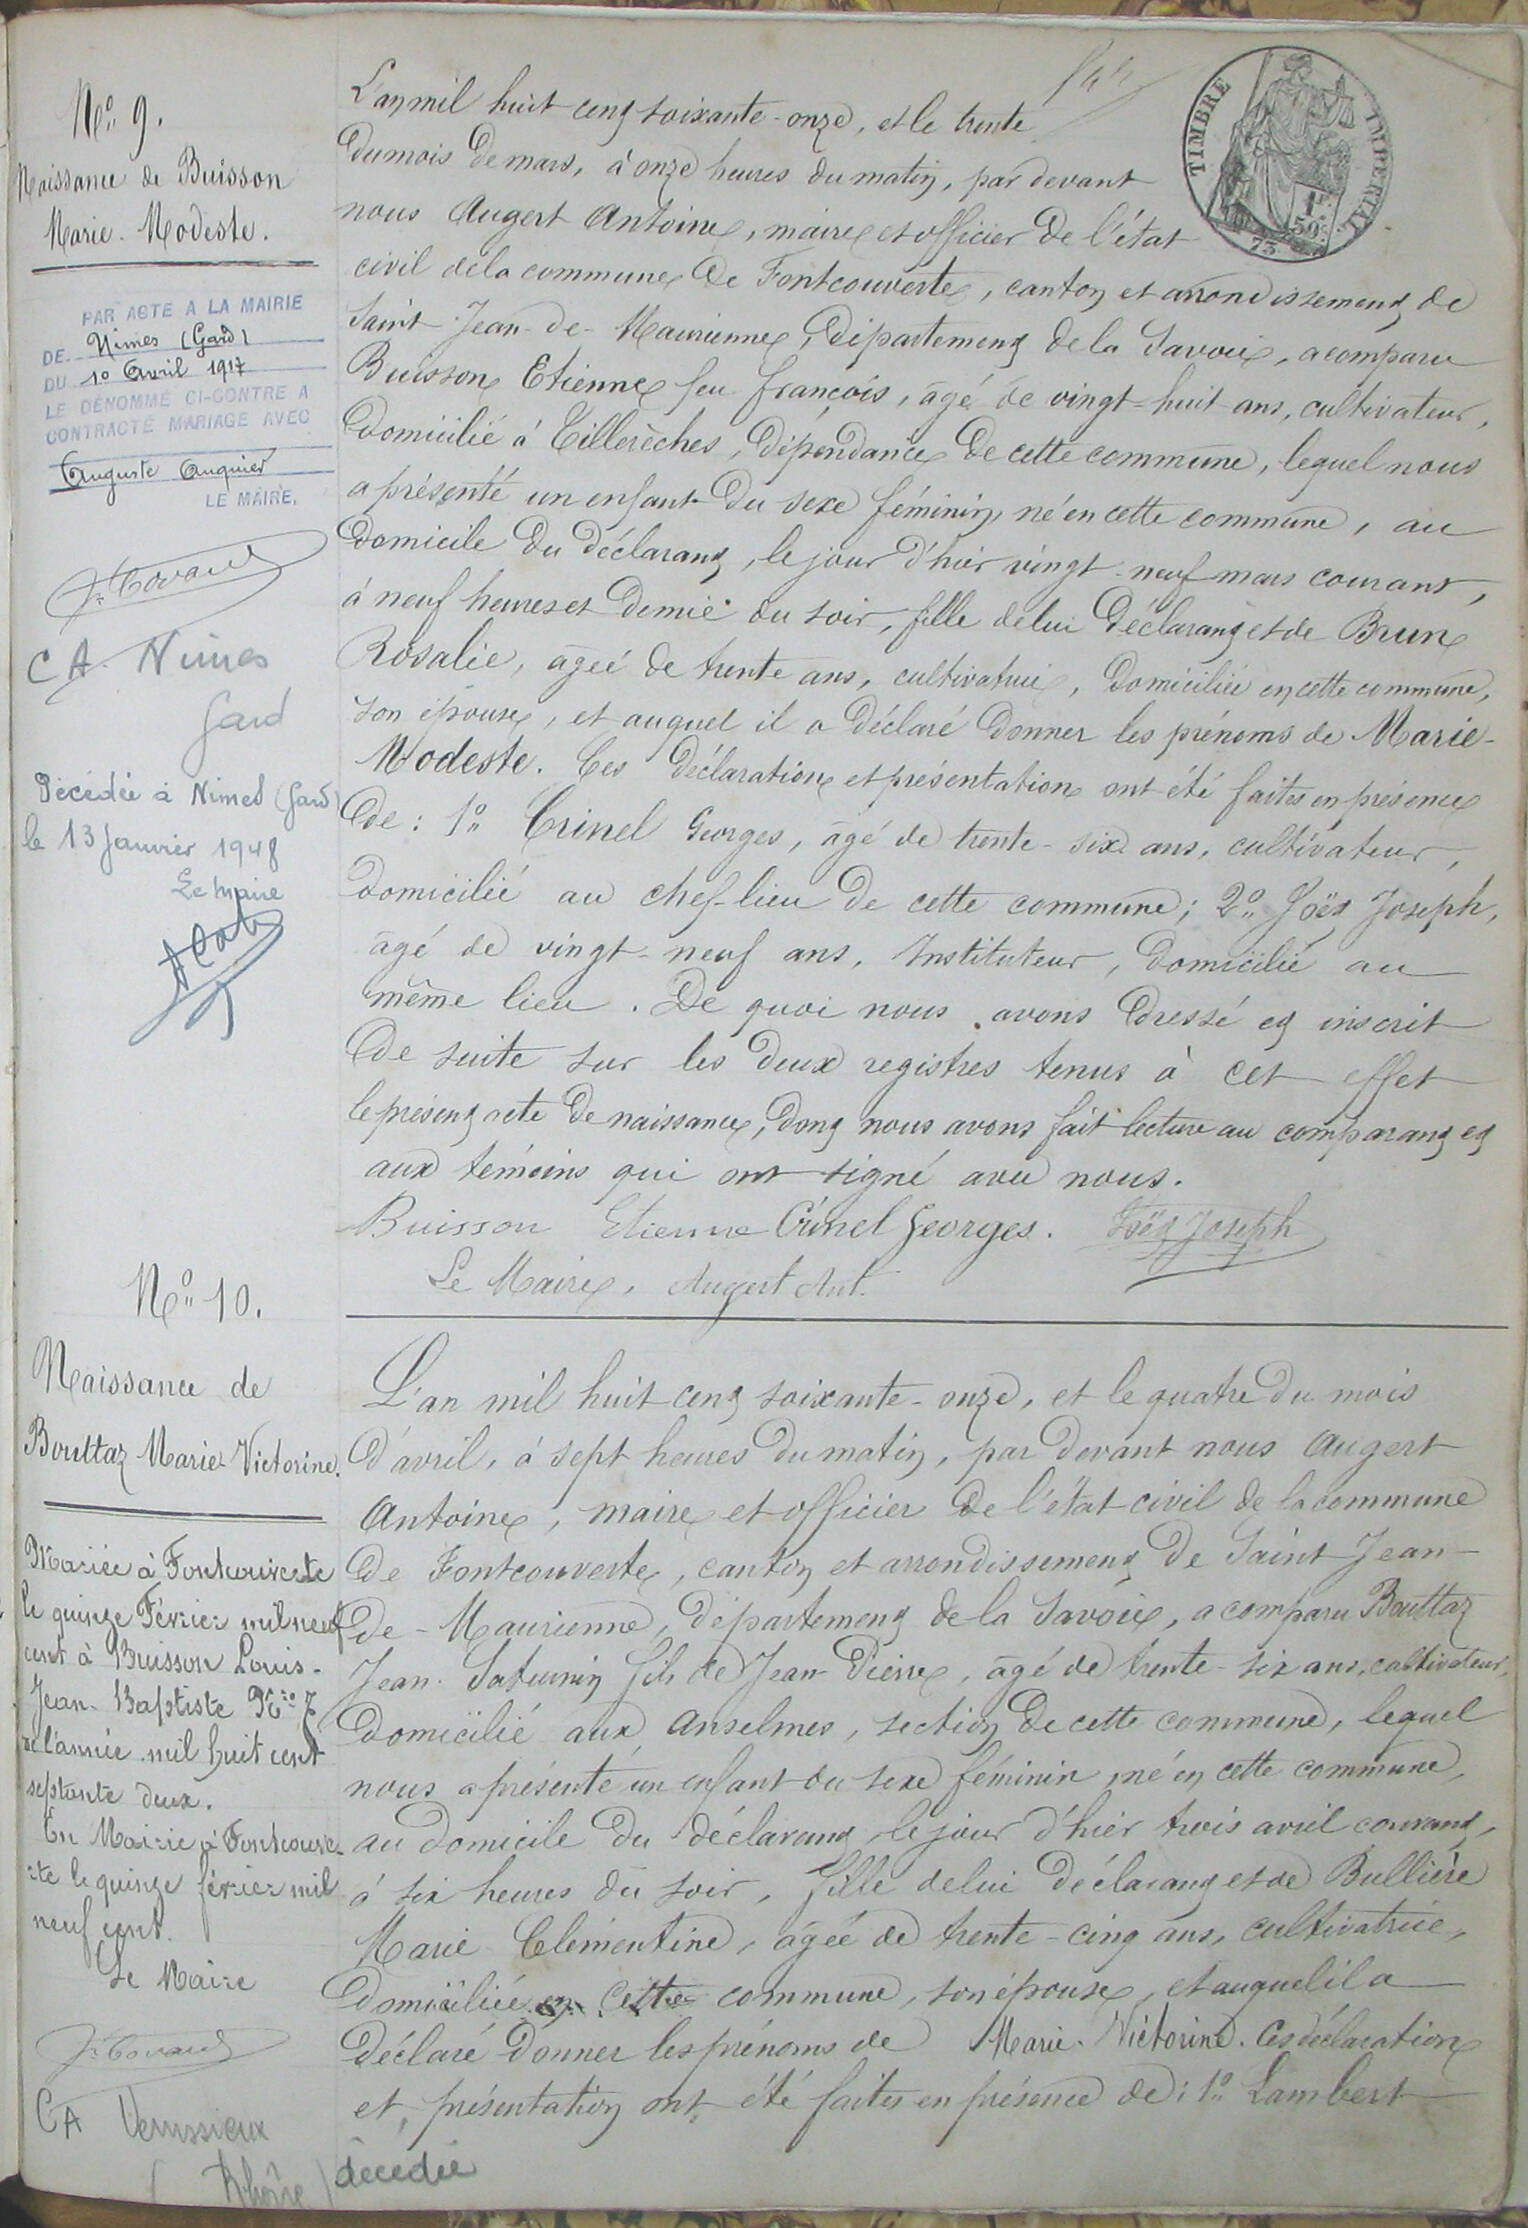 N° 9.
Naissance de Buisson
Marie-Modeste.
PAR ACTE A LA MAIRIE
DE Nimes (Gard)
DU 10 Avril 1917
LE DÉNOMMÉ CI-CONTRE A
CONTRACTÉ MARIAGE AVEC
Auguste Auquier
LE MAIRE,
CA. Nimes
Gard
Décédée à Nimes (Gard)
le 13 Janvier 1948
Le Maire
TIMBRE IMPERIAL
1F
50C
73
L'an mil huit cent soixante-onze, et le trente
du mois de mars, à onze heures du matin, par devant
nous Augert Antoine, maire et officier de l'état
civil de la commune de Fontcouverte, canton et arrondissement de
Saint-Jean-de-Maurienne, département de la Savoie, a comparu
Buisson Etienne feu françois, âgé de vingt-huit ans, cultivateur,
domicilié à Tillerèches, dépendance de cette commune, lequel nous
a présenté un enfant du sexe féminin, né en cette commune, au
domicile du déclarant, le jour d'hier vingt-neuf mars courant,
à neuf heures et demie du soir, fille de lui déclarant et de Brun
Rosalie, âgée de trente ans, cultivatrice, domiciliée en cette commune,
son épouse, et auquel il a déclaré donner les prénoms de Marie-
Modeste. Ces déclaration et présentation ont été faites en présence
de : 1° Crinel Georges, âgé de trente-six ans, cultivateur,
domicilié au chef-lieu de cette commune; 2° Joët Joseph,
âgé de vingt-neuf ans, Instituteur, domicilié au
même lieu. De quoi nous avons dressé et inscrit
de suite sur les deux registres tenus à cet effet
le présent acte de naissance, dont nous avons fait lecture au comparant et
aux témoins qui ont signé avec nous.
Buisson Etienne Crinel Georges. Joët Joseph
Le Maire, Augert Ant.
N° 10.
Naissance de
Bouttaz Marie-Victorine.
Mariée à Fontcouverte
le quinze Février mil neuf
cent à Buisson Louis-
Jean-Baptiste N° 7
de l'année mil huit cent
septante deux.
En Mairie à Fontcouve-
rte le quinze février mil
neuf cent.
Le Maire
CA Venissieux
( Rhône )
L'an mil huit cent soixante-onze, et le quatre du mois
d'avril, à sept heures du matin, par devant nous Augert
Antoine, maire et officier de l'état civil de la commune
de Fontcouverte, canton et arrondissement de Saint-Jean-
de-Maurienne, département de la Savoie, a comparu Bouttaz
Jean-Saturnin fils de Jean-Pierre, âgé de trente-six ans, cultivateur,
domicilié aux Anselmes, section de cette commune, lequel
nous a présenté un enfant du sexe féminin, né en cette commune,
au domicile du déclarant, le jour d'hier trois avril courant,
à six heures du soir, fille de lui déclarant et de Bullière
Marie Clémentine, âgée de trente-cinq ans, cultivatrice,
domiciliée en cette commune, son épouse, et auquel il a
déclaré donner les prénoms de Marie-Victorine. Ces déclaration
et présentation ont été faites en présence de : 1° Lambert
décédée